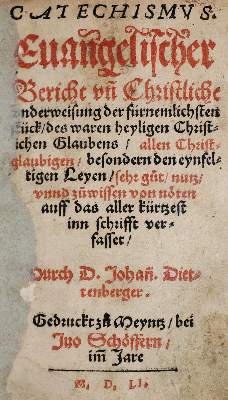 CATECHISMVS.
Euangelischer
Bericht vñ Christliche
nderweisung der fürnemlichsten
stück / des waren heyligen Christ-
lichen Glaubens / allen Christ-
glaubigen / besondern den eynfel-
tigen Leyen / sehr gůt / nutz /
vnnd zůwissen von nöten
auff das aller kürtzest
inn schrifft ver-
fasset /
Durch D. Johañ. Diet-
tenberger.
Gedruckt zů Meyntz / bei
Juo Schöffern /
im̃ Jare
M. D. LI.